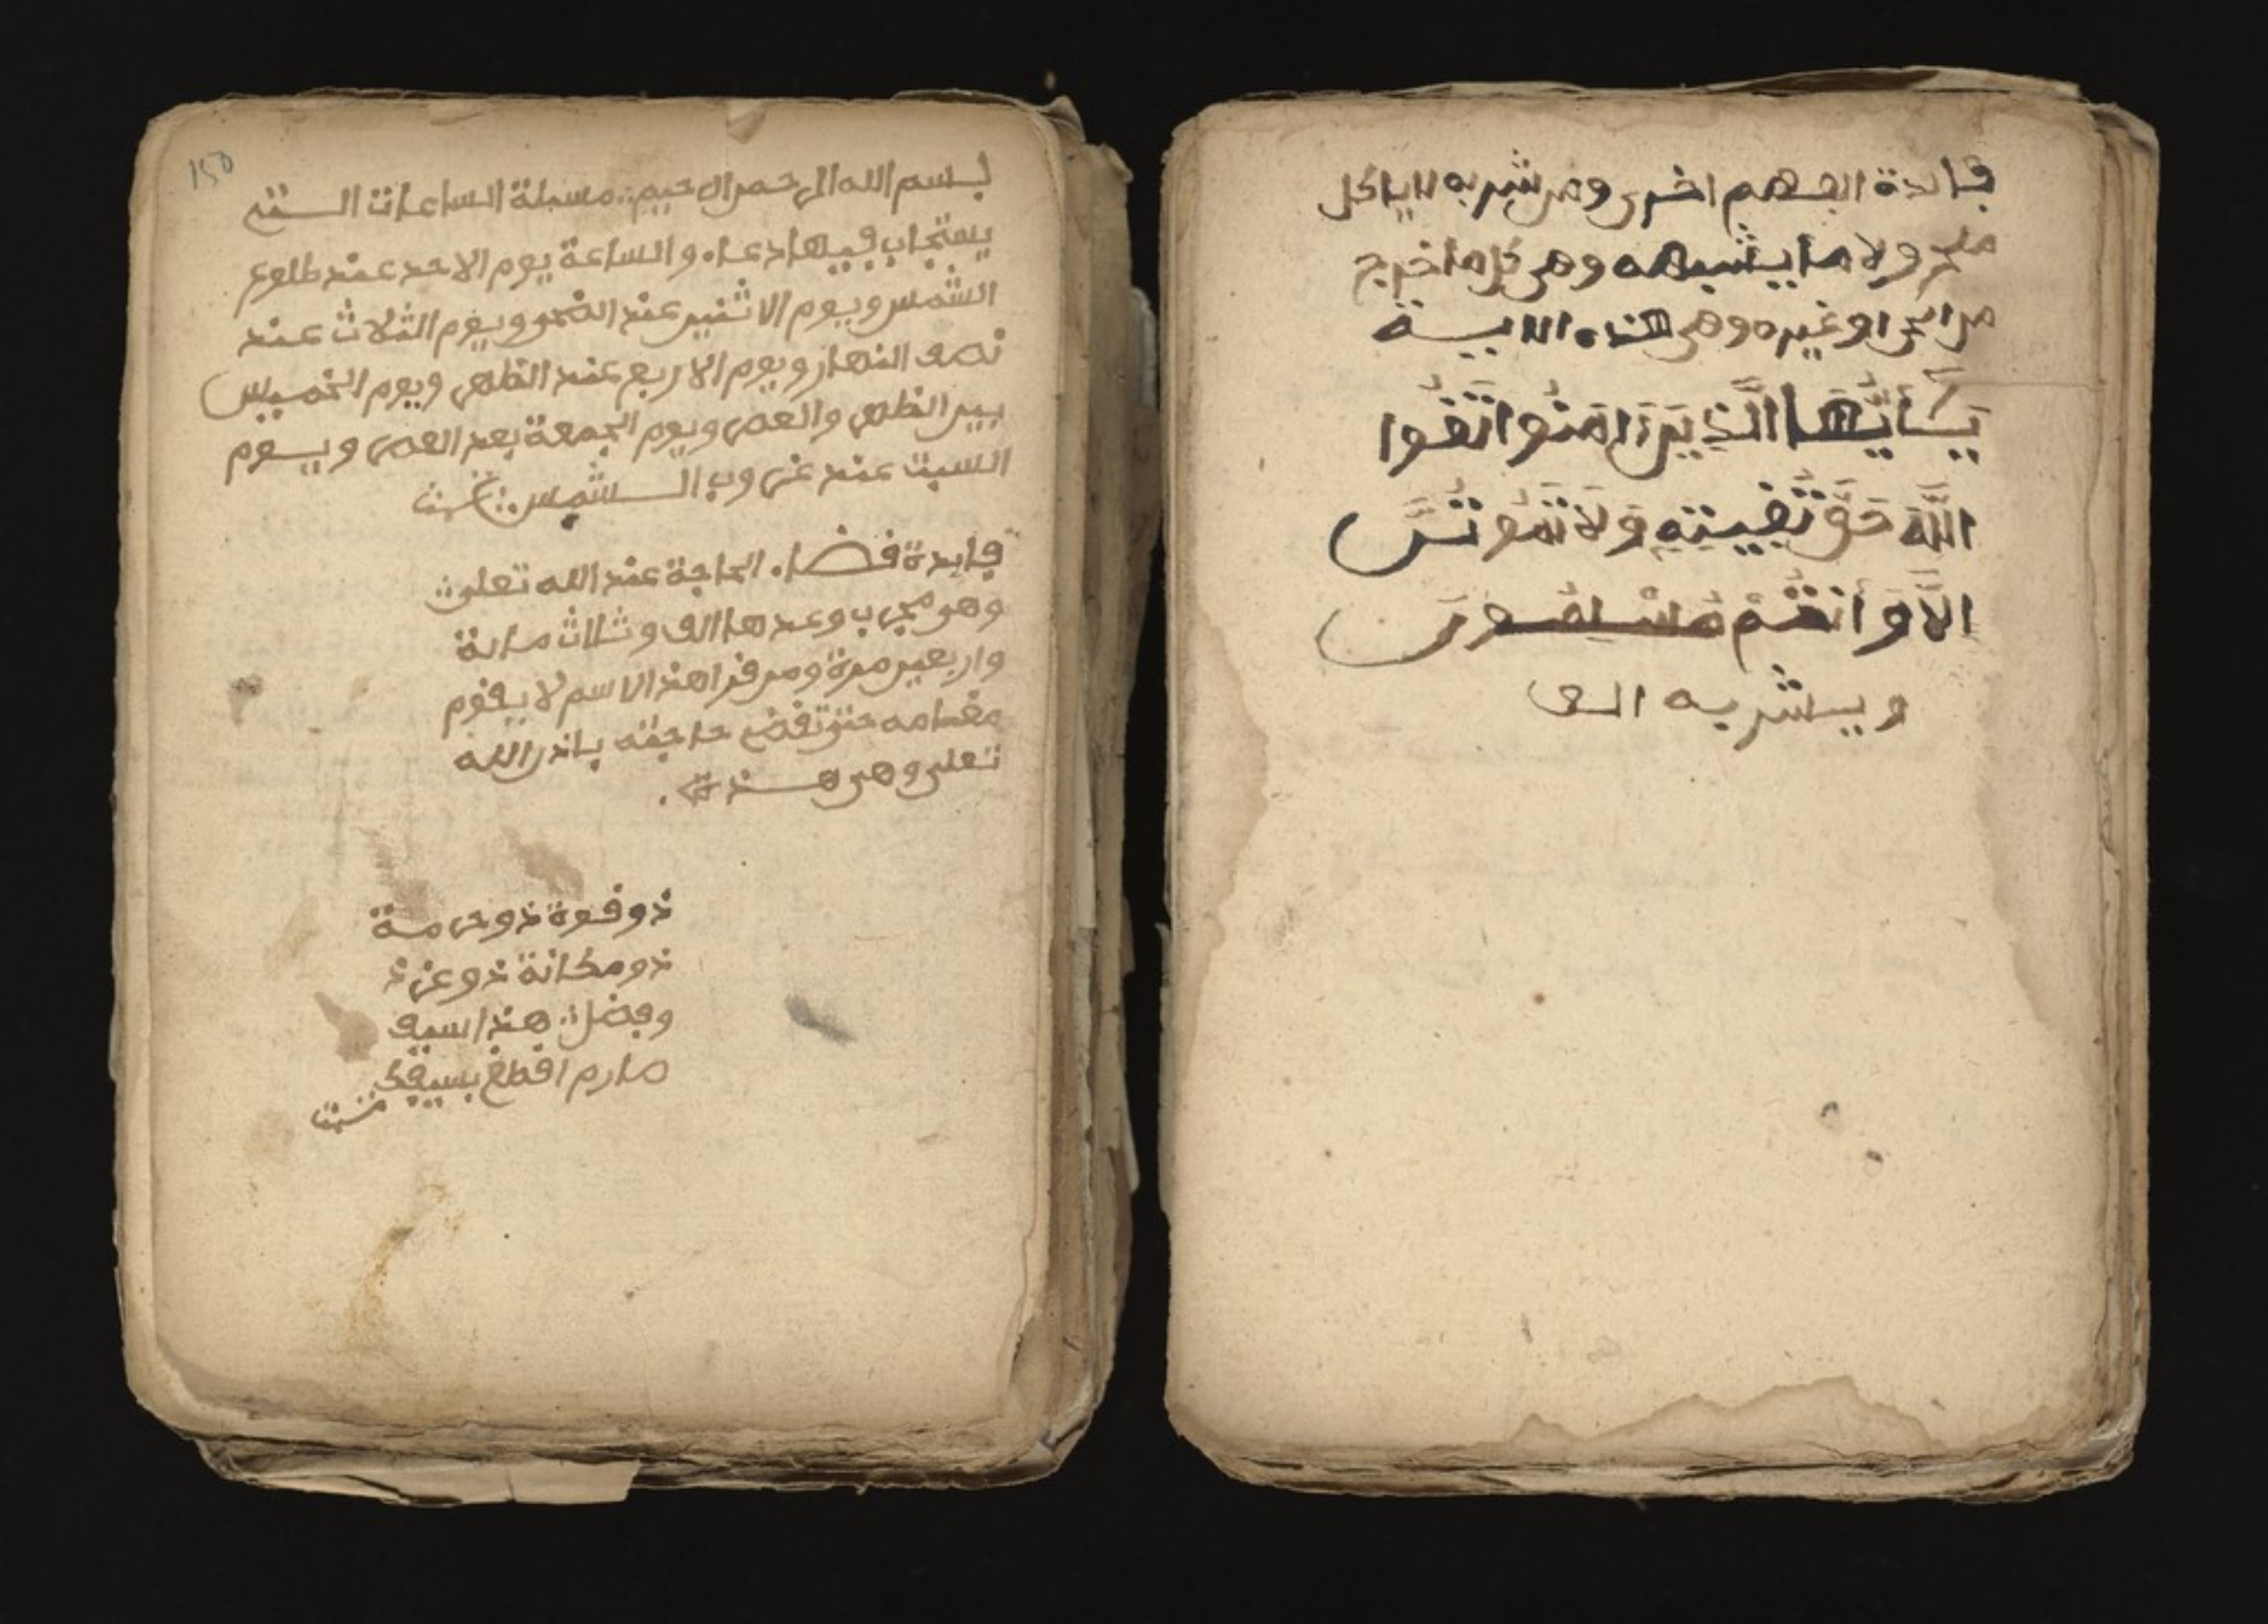 فايدة الفهم اخرى ومن شربه لا ياكل
ملح ولا ما يشبهه وهى كل ما اخرج
من البحر او غيره وهى هذه الايـــة
يَـٰأَيُّهَا الَّذِينَ ءَامَنُوا اتَّقُوا
اللَّهَ حَقَّ تُقَيـتِهِ وَلَا تَمُوتُنَّ
إلاَّ وَأَنتُم مُّسْلِمُونَ
ويشربه الـ
150
بسم الله الرحمن الرحيم مسىلة الساعات الـتى
يستجاب فيها دعاه والساعة يوم الاحد عند طلوع
الشمس ويوم الاثنين عند الضحى ويوم الثلاث عند
نصف النهار ويوم الاربع عند الظهر ويوم الخميس
بين الظهر والعصر ويوم الجمعة بعد العصر ويـوم
السبت عند غروب الــشمس تمت
فايدة قـضاء الحاجة عند الله تعلى
وهو مجرب وعدها الف وثلاث ماىة
واربعين مرة ومن قرا هذا الاسم لا يقوم
مقامه حتى تقضى حاجته باذن الله
تعلى وهى هــذه
ذو قوة ذو حرمـة
ذو مكانة ذو عز ذ
وفضل هذا سيف
صارم اقطع بسيفك
تمت